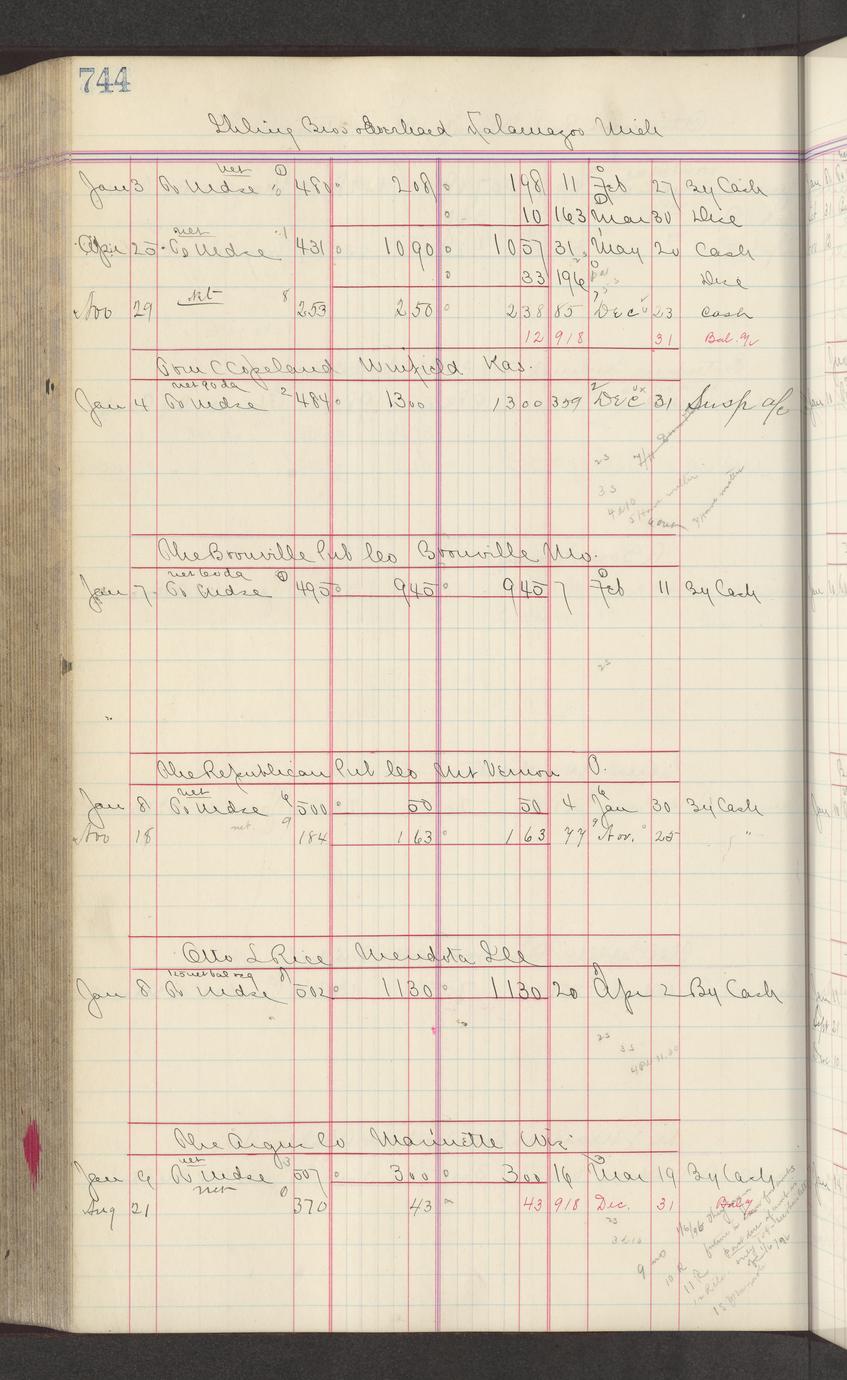 744
Ihling Bros & Everhard Kalamazoo Mich
net
Jan 3 To Mdse 480 2 08 1 98 11 Feb 27 By Cash
10 163 Mar 30 Disc
net
Apr 25 To Mdse 431 10 90 10 57 31 May 20 Cash
33 196 Disc
Nov 29 net 8 253 2 50 2 38 85 Dec 23 Cash
12 918 31 Bal. a/c
Tom C Copeland Winfield Kas.
net 90 da
Jan 4 To Mdse 2 484 13 00 13 00 359 Dec 31 Susp a/c
25
35
The Boonville Pub Co Boonville Mo.
net 60 da
Jan 7 To Mdse 495 9 45 9 45 7 Feb 11 By Cash
25
The Republican Pub Co Mt Vernon O.
net
Jan 8 To Mdse 6 500 50 50 4 Jan 30 By Cash
Nov 18 net 9 184 1 63 1 63 77 Nov. 25 "
Otto L Rice Mendota Ill
Jan 8 To Mdse 502 11 30 11 30 20 Apr 2 By Cash
25
35
The Argus Co Marinette Wis.
net
Jan 9 To Mdse 3 507 3 00 3 00 16 Mar 19 By Cash
Aug 21 net 370 43 43 918 Dec. 31 Bal
25
9 mo
10 R
11 R